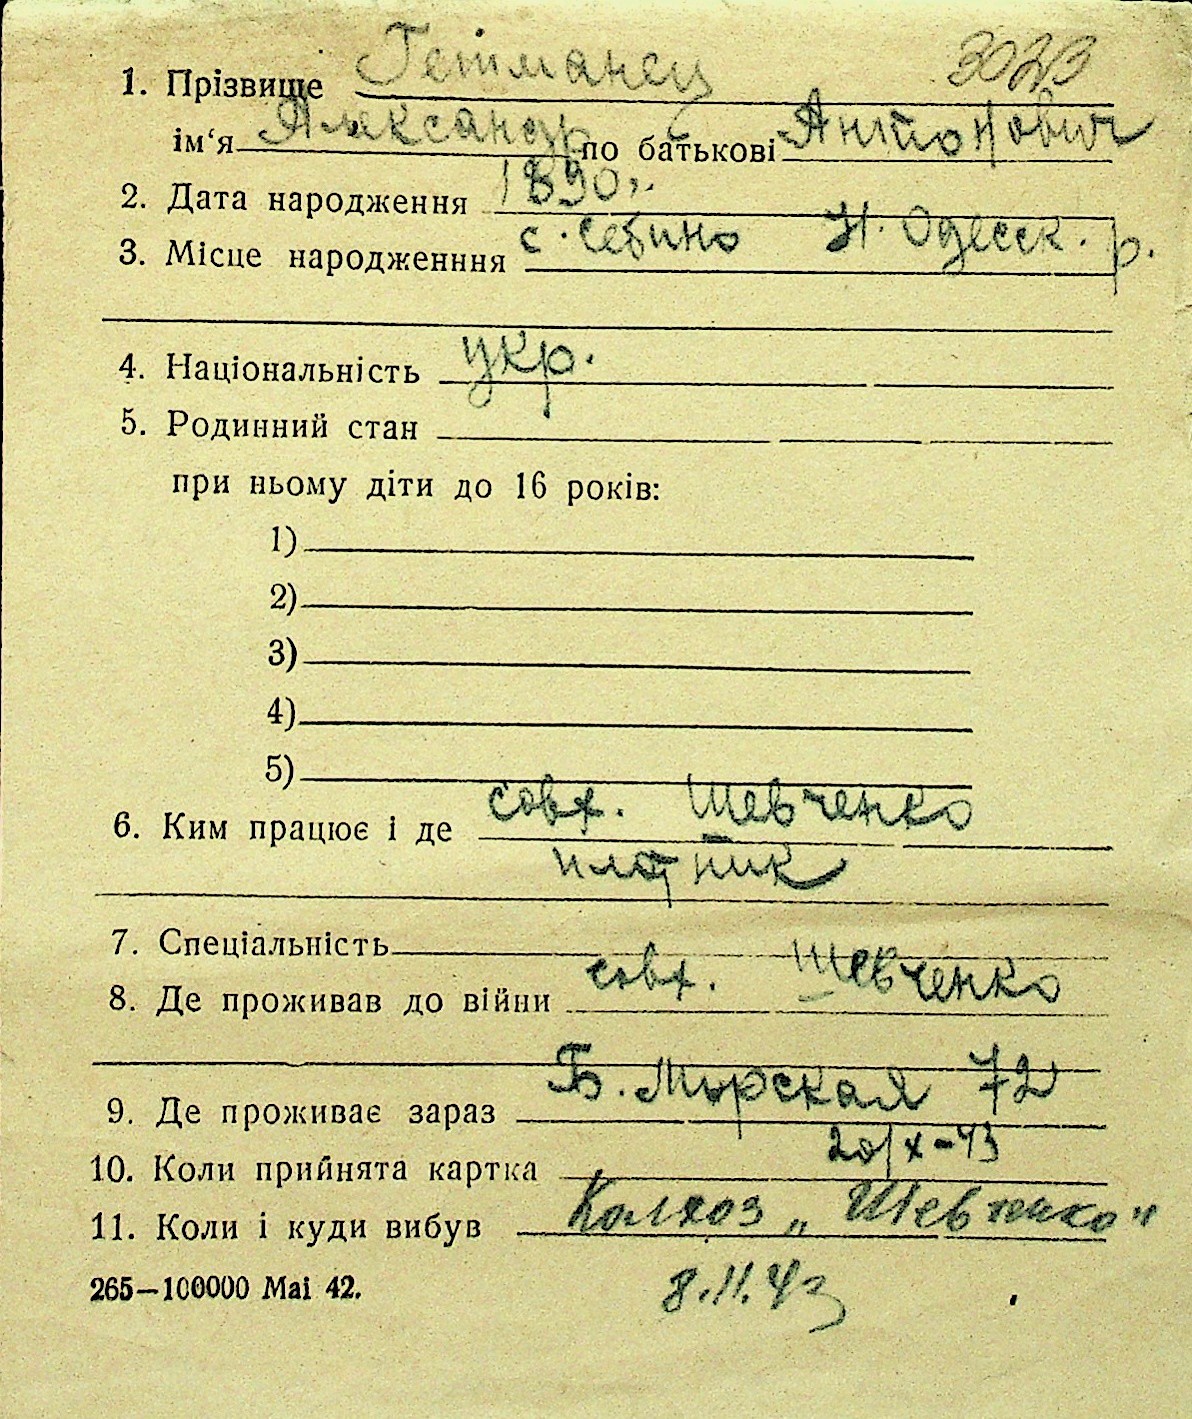 1. Прізвище Гетманец 3023
ім‘я Александр по батькові Антонович
2. Дата народження 1890 г.
3. Місце народженння с. Себино Н. Одесск. р.
4. Національність укр.
5. Родинний стан
при ньому діти до 16 років:
1)
2)
3)
4)
5)
6. Ким працює і де совх. Шевченко
плотник
7. Спеціальність
8. Де проживав до війни совх. Шевченко
9. Де проживає зараз Б. Морская 72
10. Коли прийнята картка 20/X-43
11. Коли і куди вибув Колхоз „Шевченко"
265—100000 Mai 42. 8.11.43